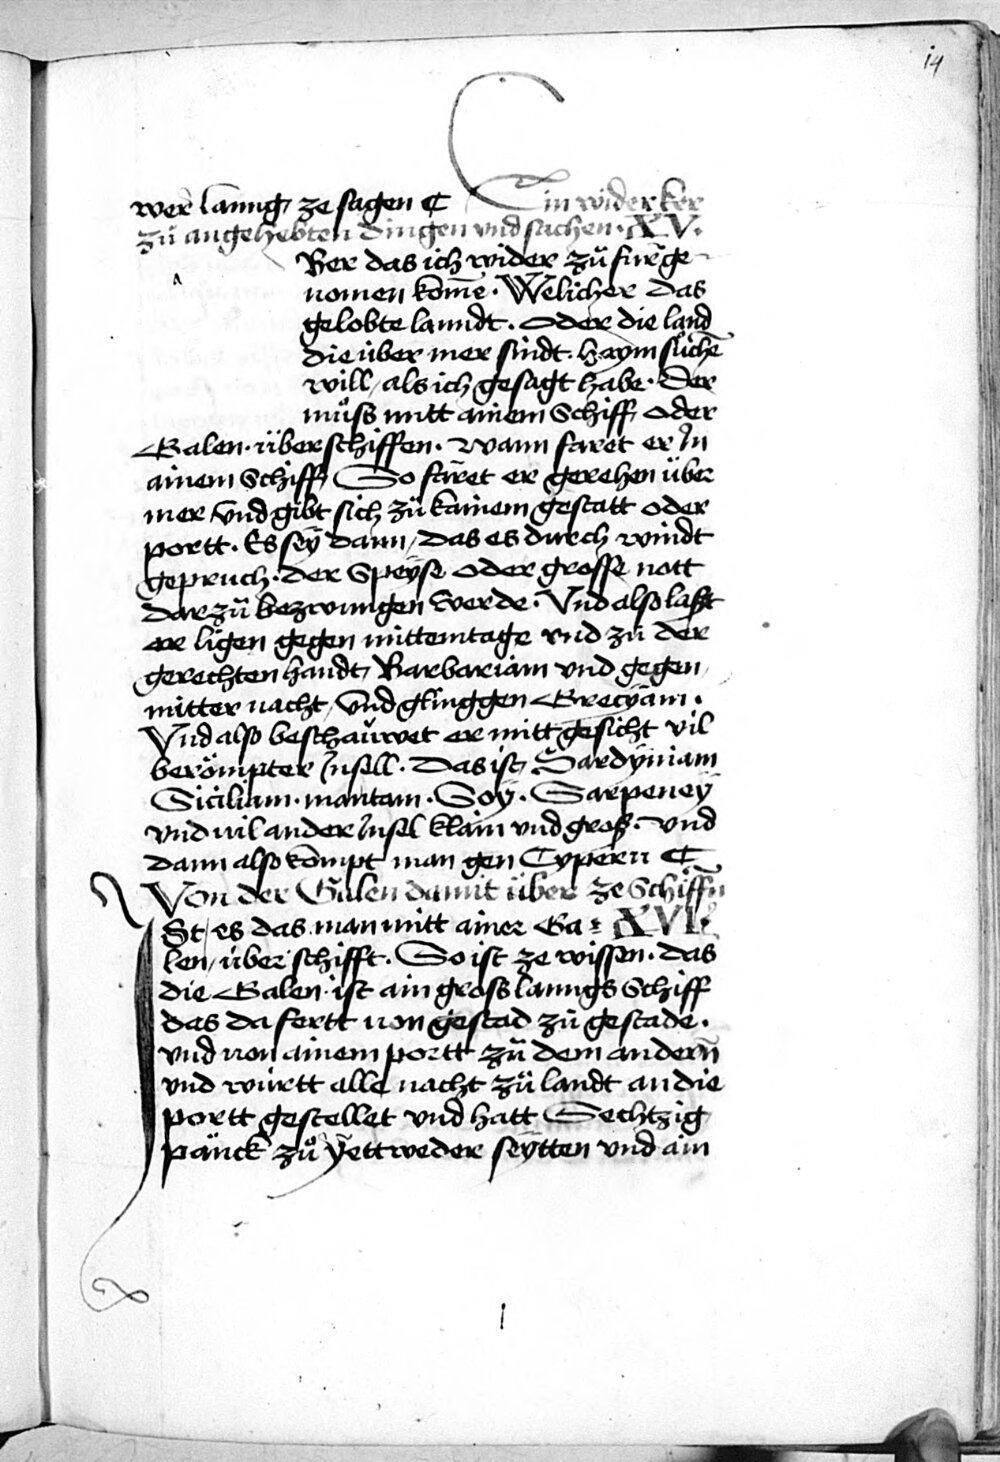 14
wer lanng ze sagen ⸿ Ein wider ker
zů angehebten dingen vnd sachen · XV ·
Ber das ich wider zů fur̄ge
a nomen kom̄e · Welicher das
gelobte lanndt · oder die land
die über mer sindt · haym sůchn̄
will / als ich gesagt habe · Der
můss mitt ainem Schiff oder
Galen · überschiffen · wann faret er Jn
ainem Schiff / So faret er gerehen über
mer / vnd gibt sich zů kainem gestatt oder
portt · Es seÿ dann / das es durch windt
gepruch · der Speÿse oder grosse nott
darzů bezwungen werde · Vnd also lasst
er ligen gegen mittemtage vnd zů der
gerechten handt / Barbariam vnd gegen
mitter nacht / vnd glinggen Grecÿam ·
Vnd also beschauwet er mitt gesicht vil
berömpter Jnsell · Das ist / Sardÿniam
Siciliam · mantam · Soÿ · Sarpeneÿ
vnd uil ander Jnsel klain vnd groß · vnd
dann also kompt man gen Cypern ⸿
Von der Galen damit über ze Schiffn̄
JSt / es das man mitt ainer Ga = XVI ·
len / über schifft · So ist ze wissen · das
die Galen · ist ain gross lanngs Schiff
das da fertt von gestad zů gestade ·
vnd von ainem portt zů dem andern̄
vnd württ alle nacht zů landt an die
portt gestellet vnd hatt Sechtzig
pänck zů ÿettweder seÿtten vnd ain